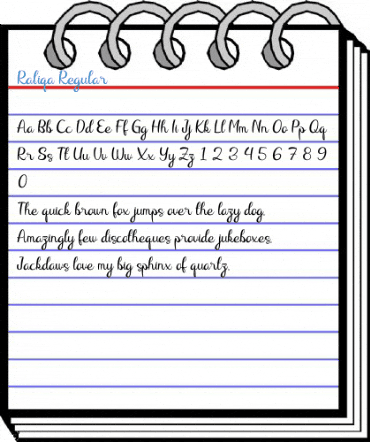 Raliqa Regular
Aa Bb Cc Dd Ee Ff Gg Hh Ii Jj Kk Ll Mm Nn Oo Pp Qq
Rr Ss Tt Uu Vv Ww Xx Yy Zz 1 2 3 4 5 6 7 8 9
0
The quick brown fox jumps over the lazy dog.
Amazingly few discotheques provide jukeboxes.
Jackdaws love my big sphinx of quartz.